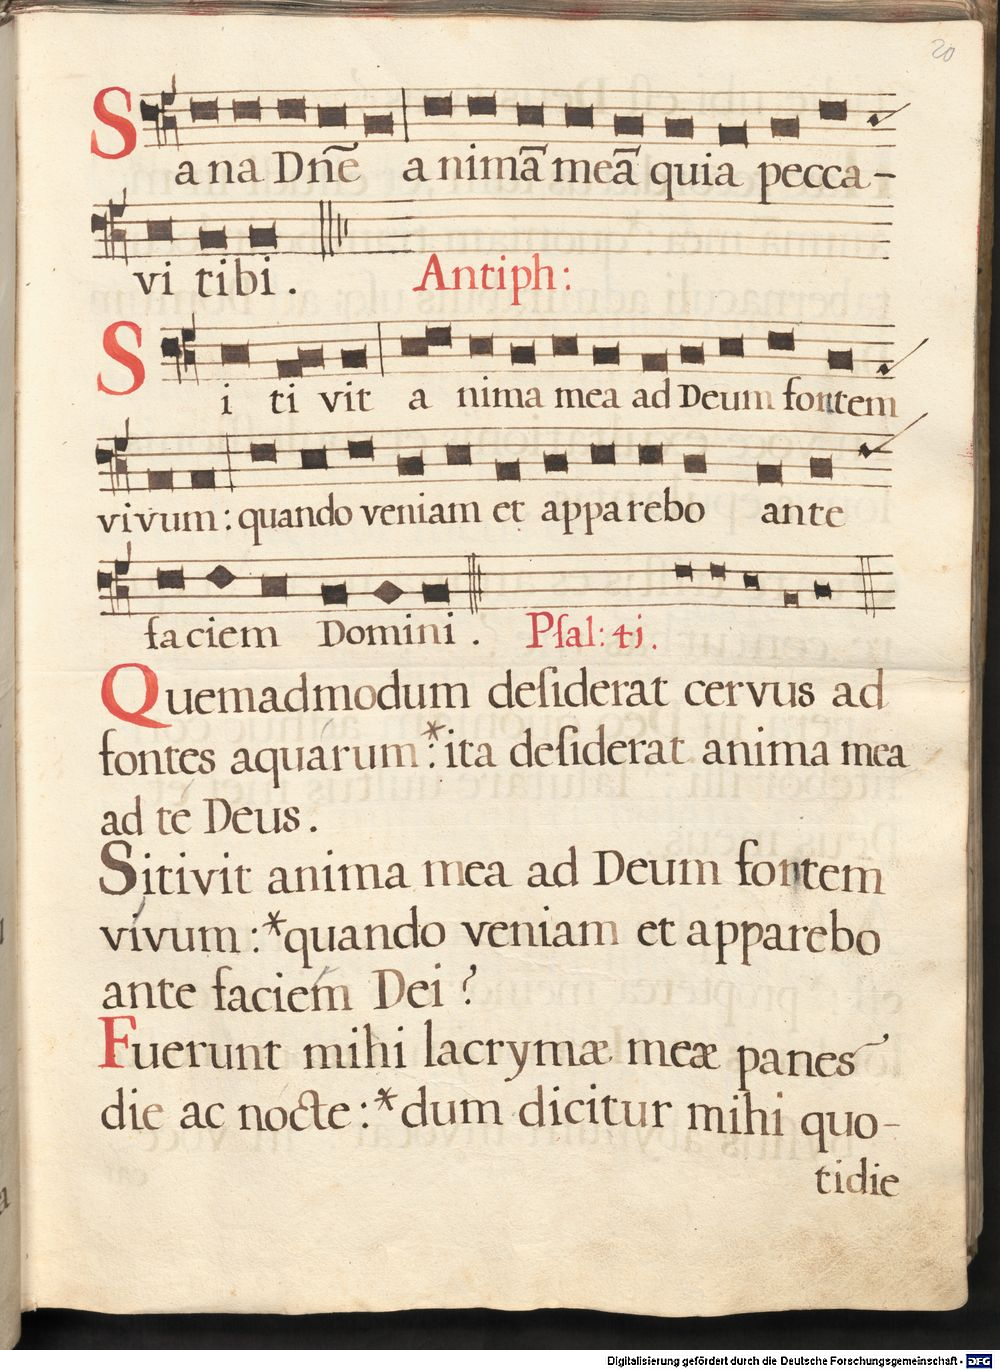 20
Sana Dnē animā meā quia pecca-
vi tibi.
Antiph:
Sitivit anima mea ad Deum fontem
vivum: quando veniam et apparebo ante
faciem Domini. Psal: 41.
Quemadmodum deſiderat cervus ad
fontes aquarum:* ita deſiderat anima mea
ad te Deus.
Sitivit anima mea ad Deum fontem
vivum:* quando veniam et apparebo
ante faciem Dei?
Fuerunt mihi lacrymæ meæ panes
die ac nocte:* dum dicitur mihi quo-
tidie
Digitalisierung gefördert durch die Deutsche Forschungsgemeinschaft - DFG